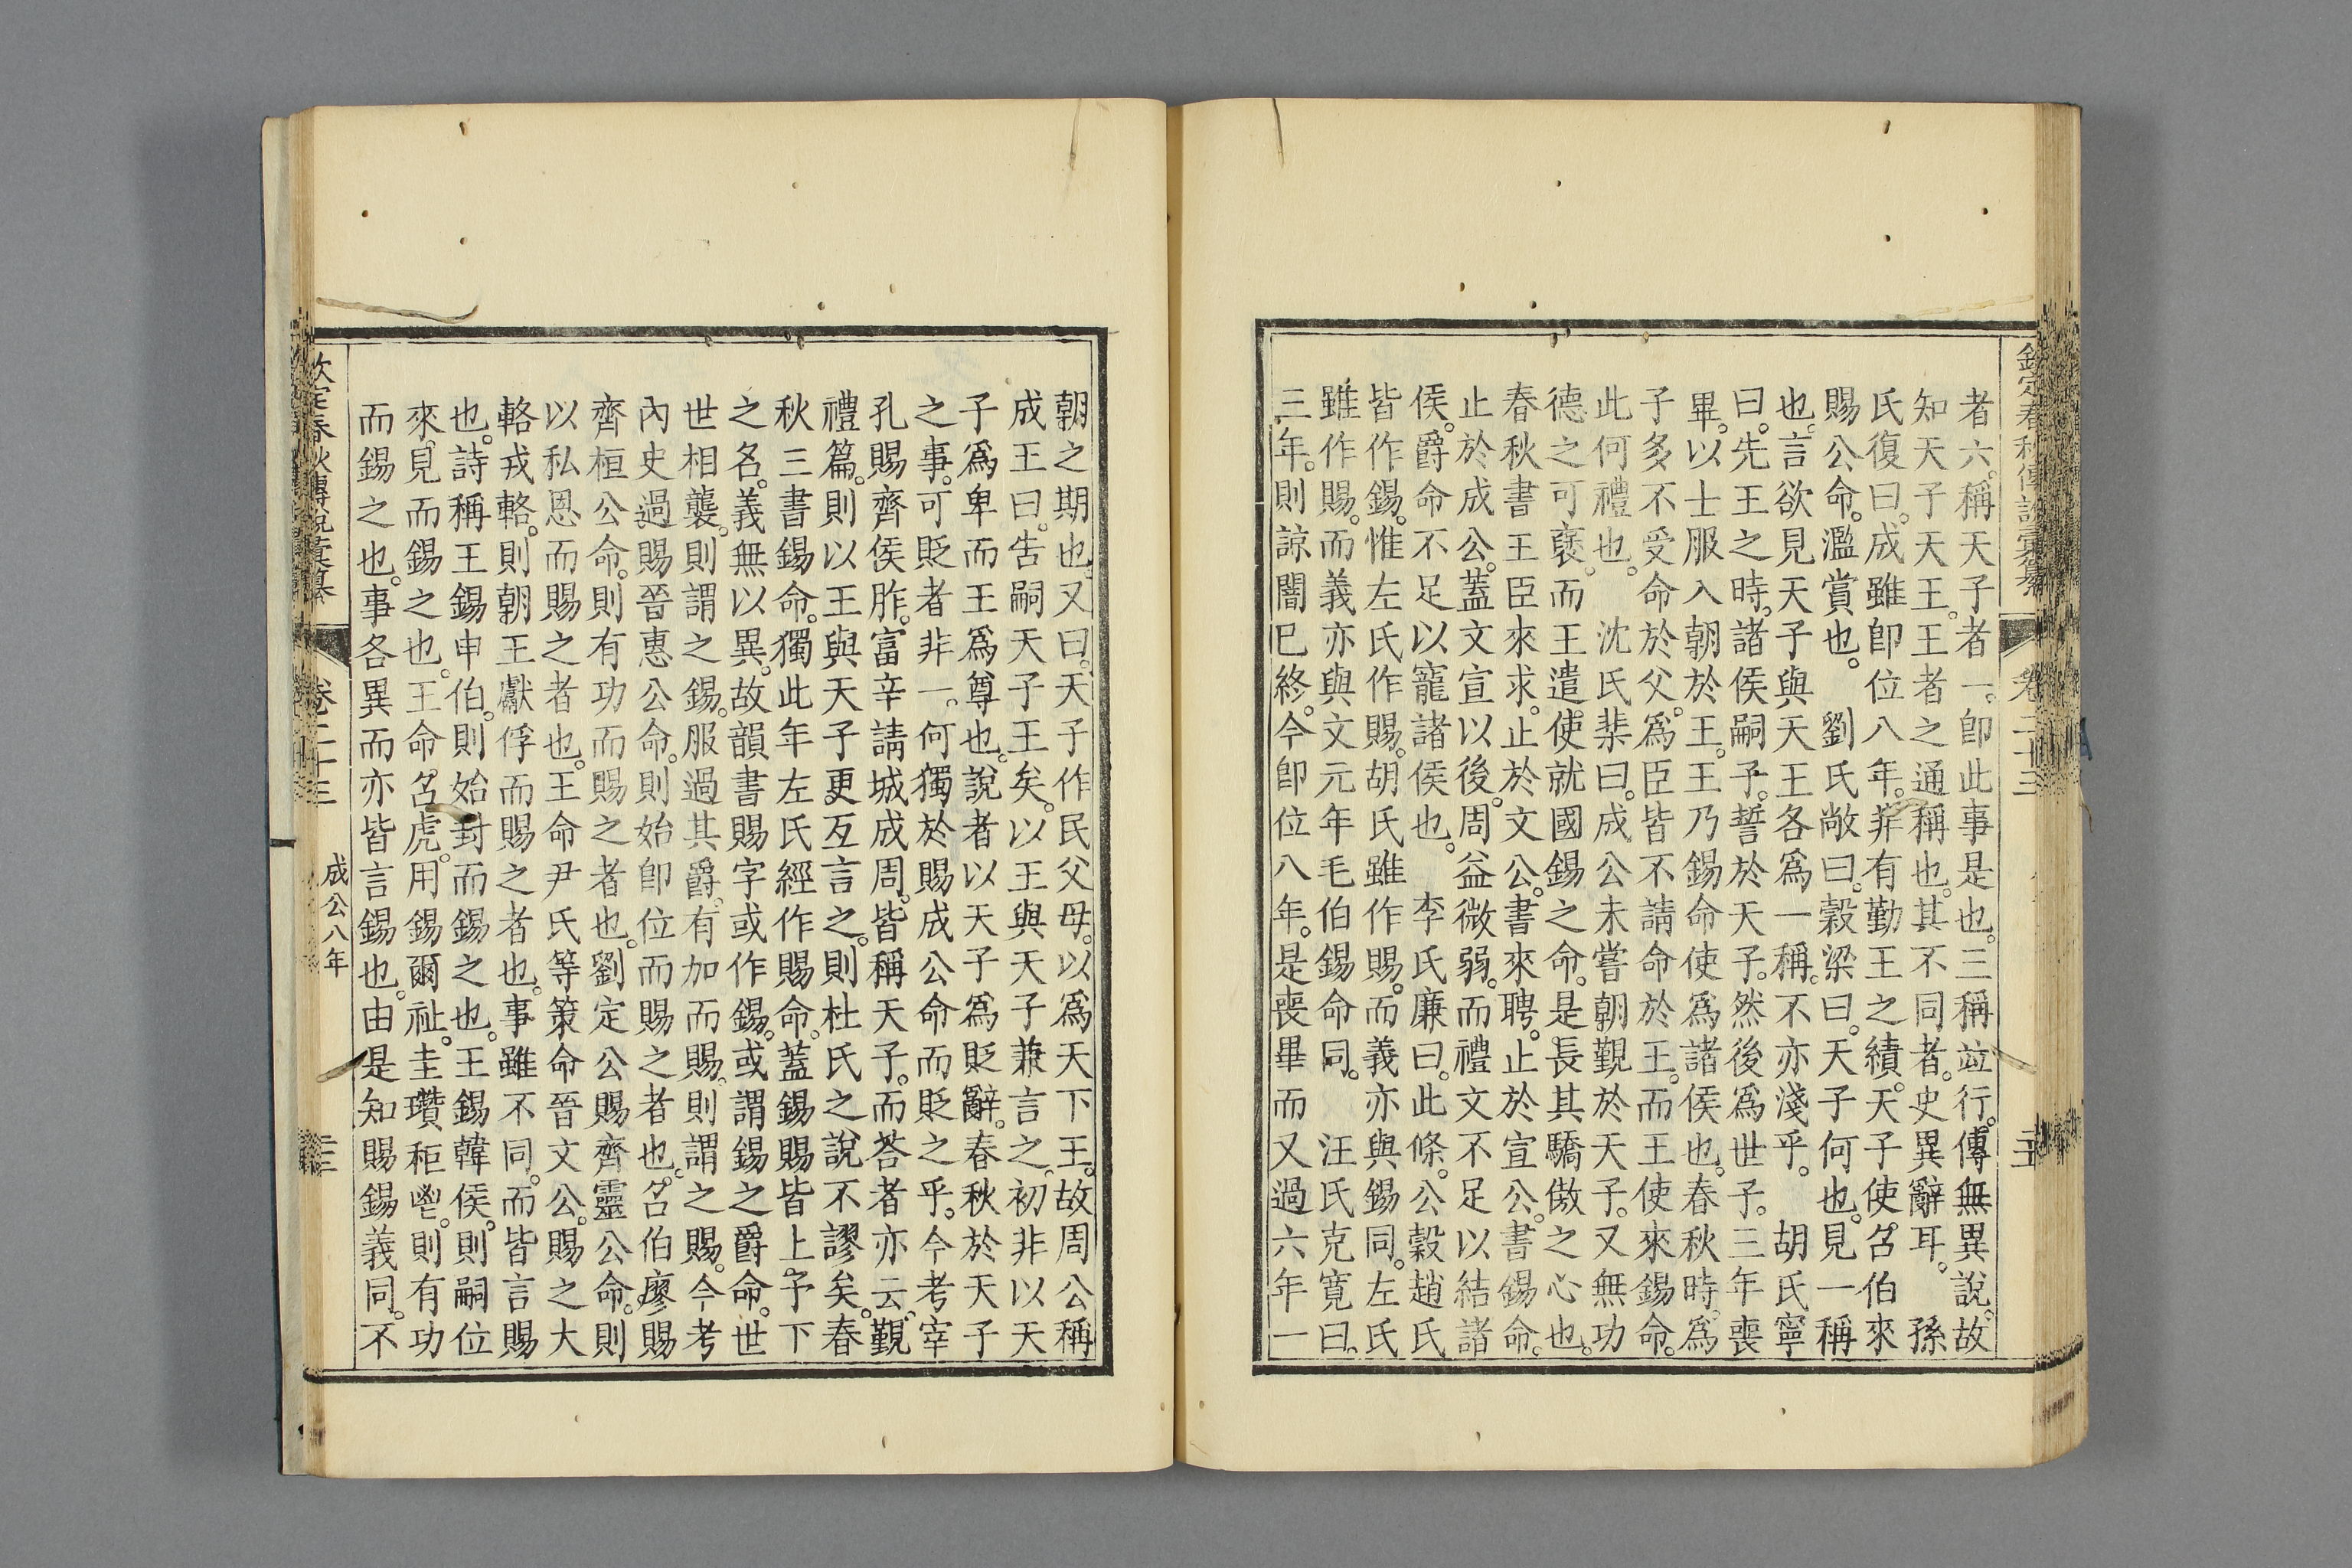 欽定春秋傳說彙纂　卷二十三
者六。稱天子者一。卽此事是也。三稱竝行。傳無異說。故
知天子天王。王者之通稱也。其不同者。史異辭耳。　孫
氏復曰。成雖卽位八年。非有勤王之績。天子使召伯來
賜公命。濫賞也。　劉氏敞曰。穀梁曰。天子何也。見一稱
也。言欲見天子與天王各爲一稱。不亦淺乎。　胡氏寧
曰。先王之時。諸侯嗣子。誓於天子。然後爲世子。三年喪
畢。以士服入朝於王。王乃錫命使爲諸侯也。春秋時。爲
子多不受命於父。爲臣皆不請命於王。而王使來錫命。
此何禮也。　沈氏棐曰。成公未嘗朝覲於天子。又無功
德之可褒。而王遣使就國錫之命。是長其驕傲之心也。
春秋書王臣來求。止於文公。書來聘。止於宣公。書錫命。
止於成公。蓋文宣以後。周益微弱。而禮文不足以結諸
侯。爵命不足以寵諸侯也。　李氏廉曰。此條。公穀趙氏
皆作錫。惟左氏作賜。胡氏雖作賜。而義亦與錫同。左氏
雖作賜。而義亦與文元年毛伯錫命同。　汪氏克寬曰。
三年。則諒闇已終。今卽位八年。是喪畢而又過六年一
朝之期也。又曰。天子作民父母。以爲天下王。故周公稱
成王曰。告嗣天子王矣。以王與天子兼言之。初非以天
子爲卑而王爲尊也。說者以天子爲貶辭。春秋於天子
之事。可貶者非一。何獨於賜成公命而貶之乎。今考宰
孔賜齊侯胙。富辛請城成周。皆稱天子。而荅者亦云。覲
禮篇。則以王與天子更互言之。則杜氏之說不謬矣。春
秋三書錫命。獨此年左氏經作賜命。蓋錫賜皆上予下
之名。義無以異。故韻書賜字或作錫。或謂錫之爵命。世
世相襲。則謂之錫。服過其爵。有加而賜。則謂之賜。今考
內史過賜晉惠公命。則始卽位而賜之者也。召伯廖賜
齊桓公命。則有功而賜之者也。劉定公賜齊靈公命。則
以私恩而賜之者也。王命尹氏等策命晉文公。賜之大
輅戎輅。則朝王獻俘而賜之者也。事雖不同。而皆言賜
也。詩稱王錫申伯。則始封而錫之也。王錫韓侯。則嗣位
來見而錫之也。王命召虎。用錫爾祉。圭瓚秬鬯。則有功
而錫之也。事各異而亦皆言錫也。由是知賜錫義同。不
欽定春秋傳說彙纂　卷二十三　成公八年